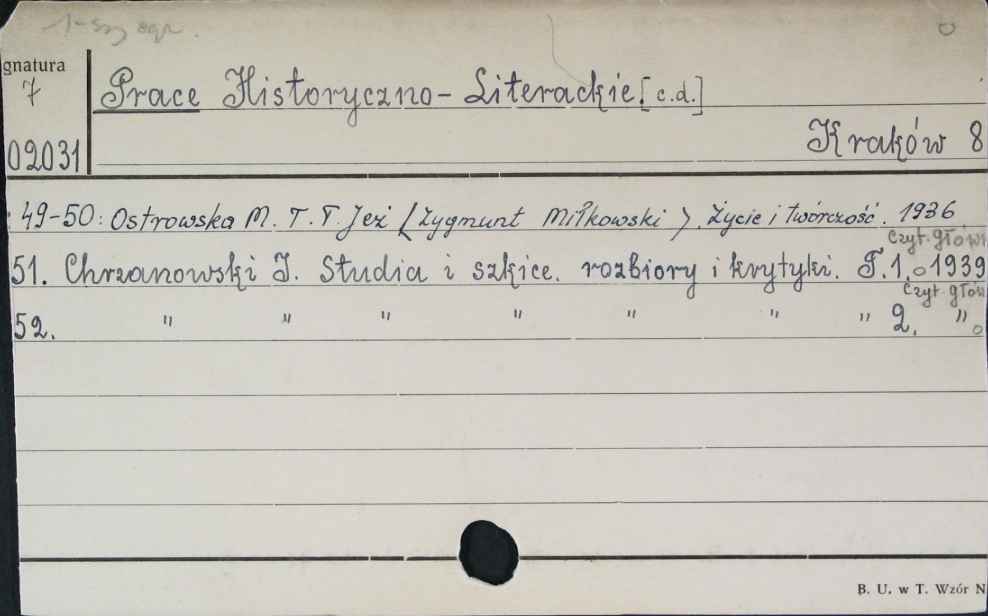 1-szy egz.
gnatura
7
02031
Prace Historyczno-Literackie. [c.d.]
Kraków 8
: 49-50: Ostrowska M. T. T. Jeż (Zygmunt Miłkowski). Życie i twórczość. 1936
Czyt. główn
51. Chrzanowski I. Studia i szkice. rozbiory i krytyki. T. 1. 1939
Czyt. głów
52. " " " " " " " 2. "
B. U. w T. Wzór N